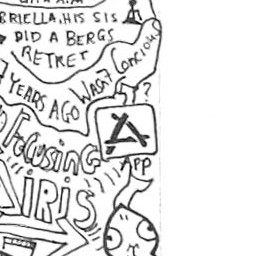 BRIELLA,HIS SIS
DID A BERGS
RETRET
7 YEARS AGO
WAS?
CONCIOUS
?
FOCUSING
APP
IRIS